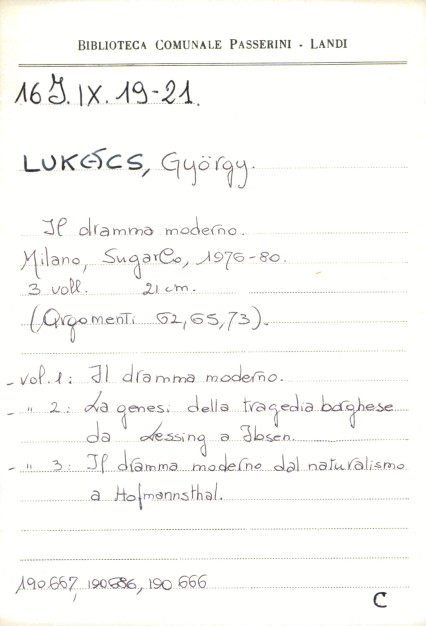 BIBLIOTECA COMUNALE PASSERINI - LANDI
16 J. IX. 19-21.
LUKÁCS, György.
Il dramma moderno.
Milano, SugarCo, 1976-80.
3 voll. 21 cm.
(Argomenti 62, 65, 73).
- vol. 1: Il dramma moderno.
- " 2: La genesi della tragedia borghese
da Lessing a Ibsen.
- " 3: Il dramma moderno dal naturalismo
a Hofmannsthal.
190.667, 190686, 190.666
C